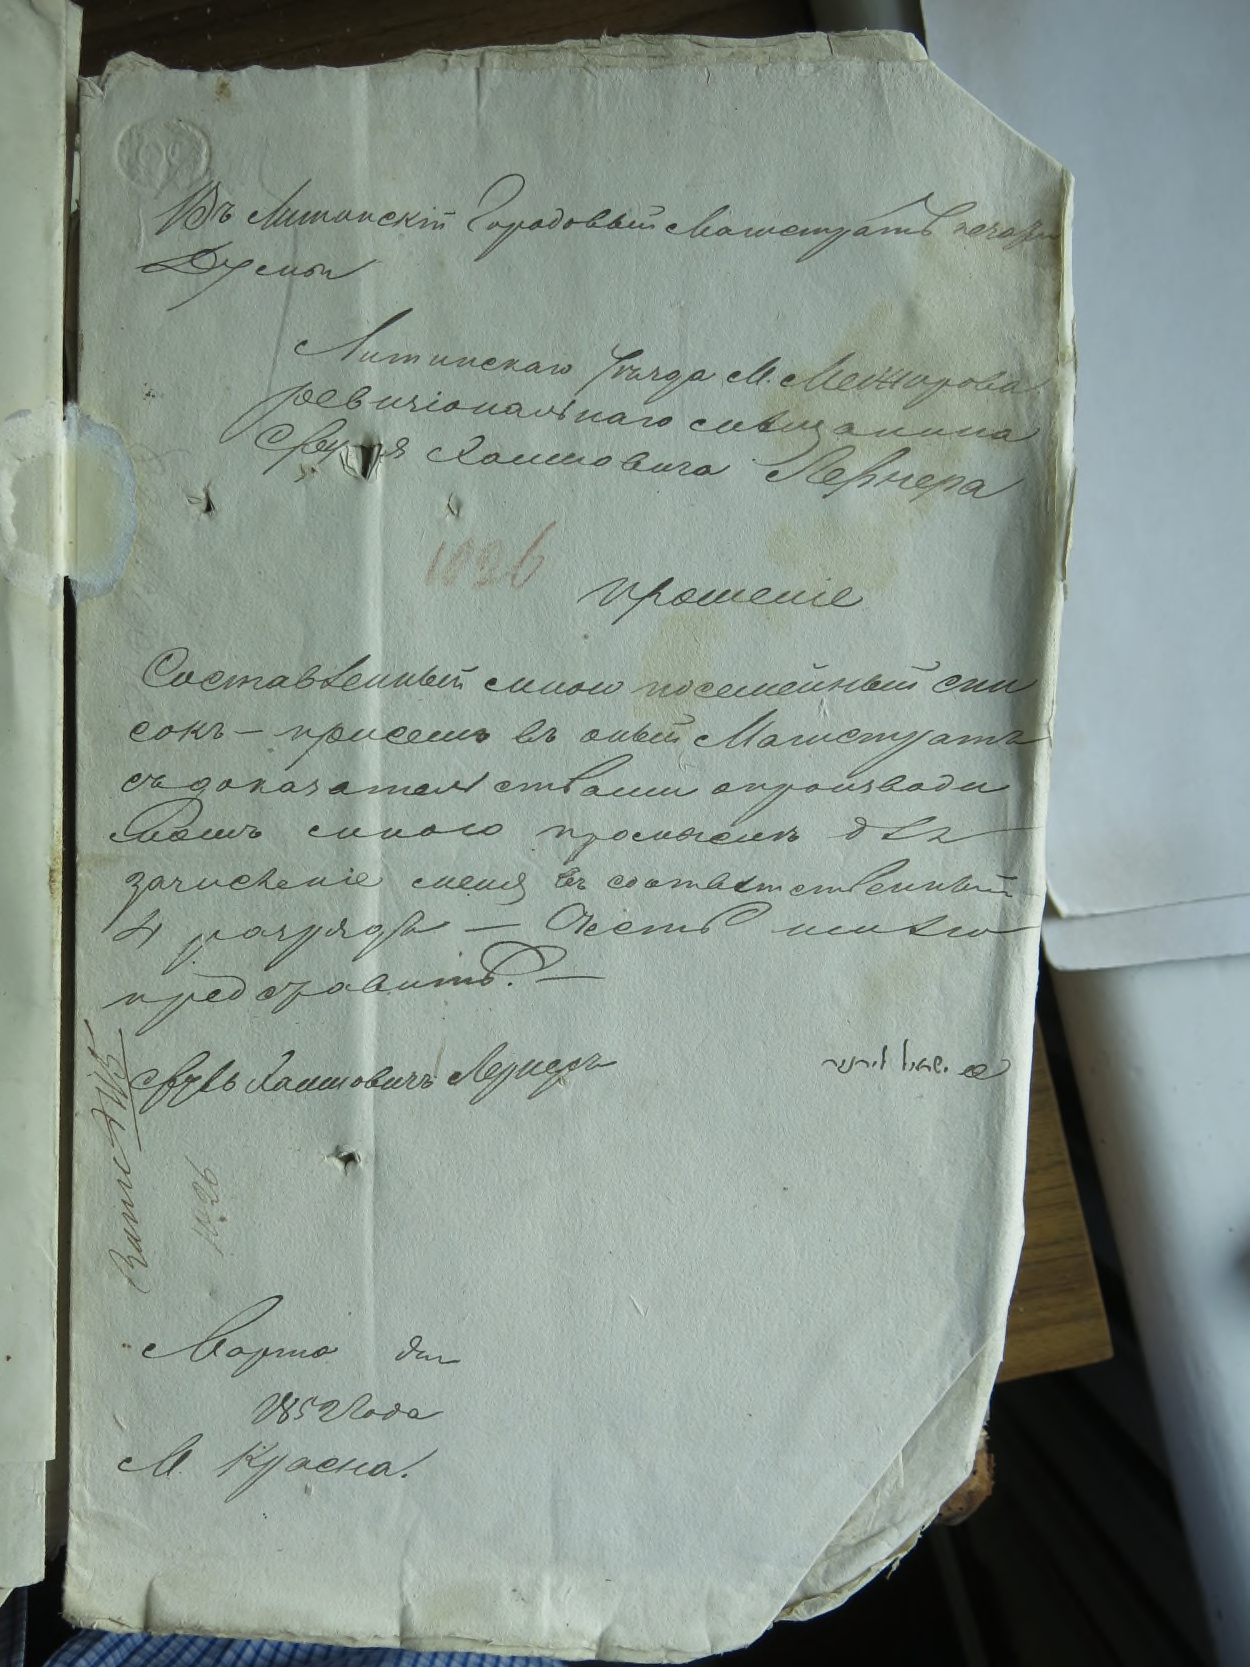 Въ Литинскій Городовый Магистратъ
Думы
Литинскаго Уѣзда М. Межирова
ревизіональнаго мѣщанина
Хаимовича Лернера
1026
прошеніе
Составленный мною посемейный спи
сокъ — при семъ въ оный Магистратъ
съ доказательствами о производи
момъ мною промыслѣ для
зачисленіе меня въ соотвѣтственный
4 разрядъ — Честь имѣю
представить. —
Сруль Хаимовичъ Лернеръ
ישראל לירנער
1026
Марта дня
1852 Года
М. Красна.